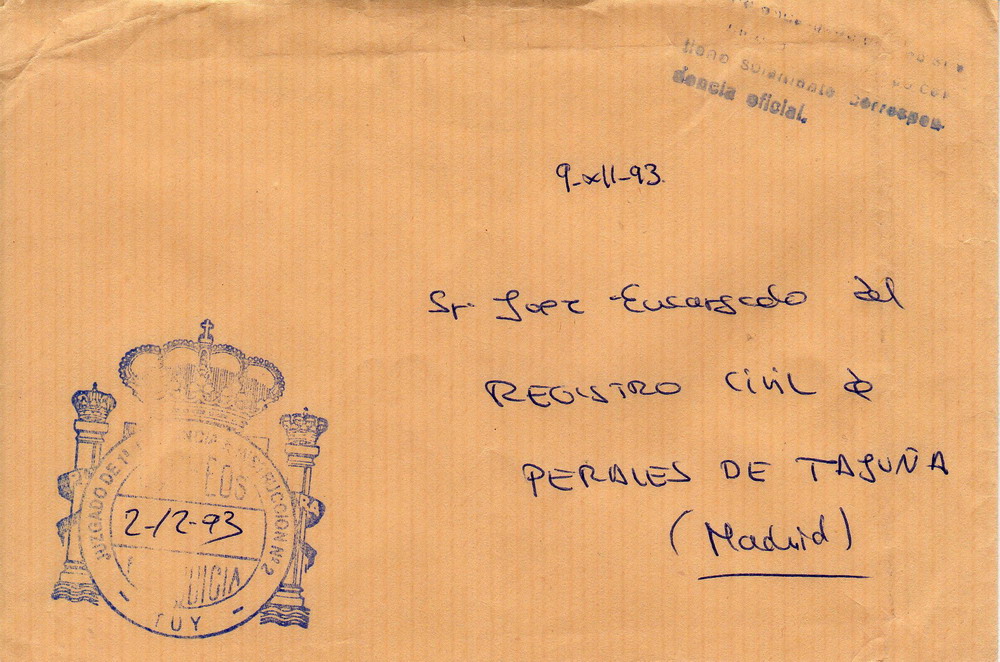 tiene solamente correspon-
dencia oficial.
9-XII-93.
Sr. Juez Encargado del
REGISTRO Civil de
PERALES DE TAJUÑA
(Madrid)
JUZGADO DE 1ª INSTRUCCION Nº 2
2-12-93
TUY